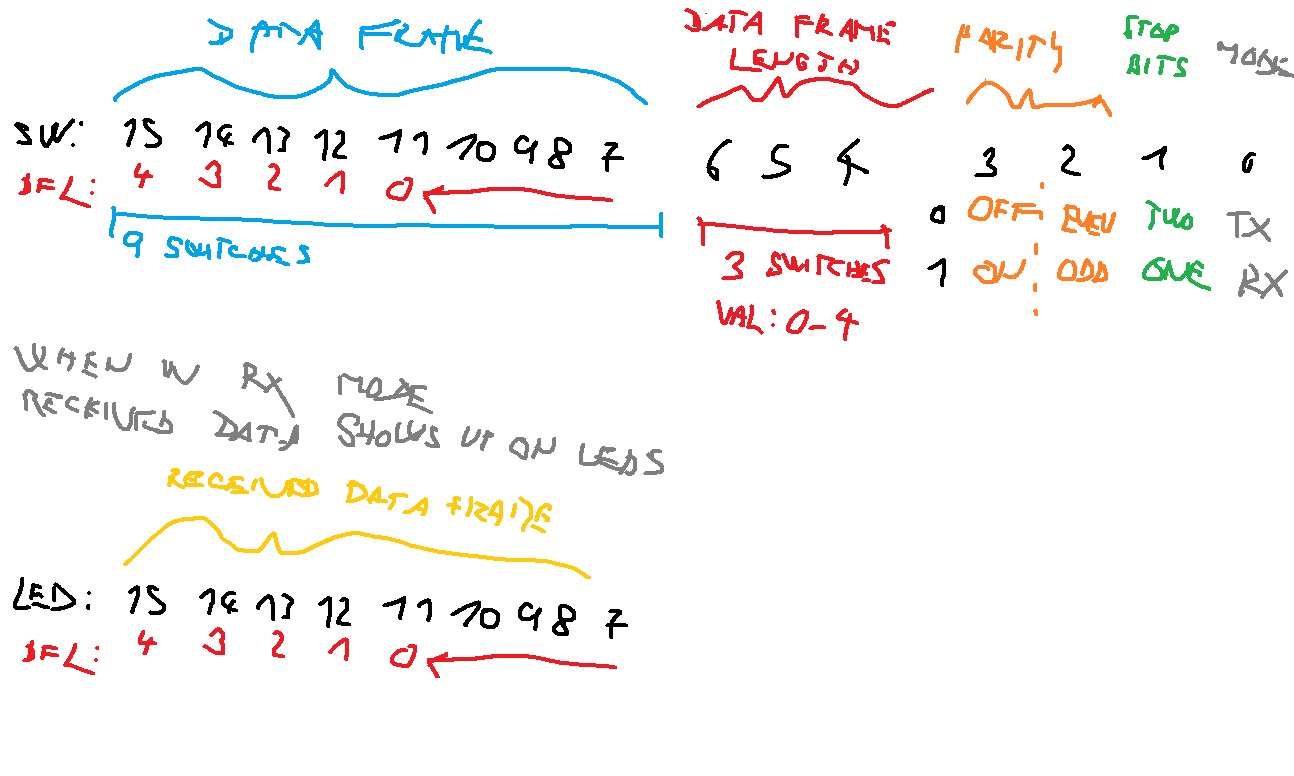 DATA FRAME
DATA FRAME LENGTH
PARITY
STOP BITS
MODE
SW: 15 14 13 12 11 10 9 8 7 6 5 4 3 2 1 0
DFL: 4 3 2 1 0
0 OFF EVEN TWO TX
9 SWITCHES
3 SWITCHES
1 ON ODD ONE RX
VAL: 0-4
WHEN IN RX MODE
RECEIVED DATA SHOWS UP ON LEDS
RECEIVED DATA FRAME
LED: 15 14 13 12 11 10 9 8 7
DFL: 4 3 2 1 0